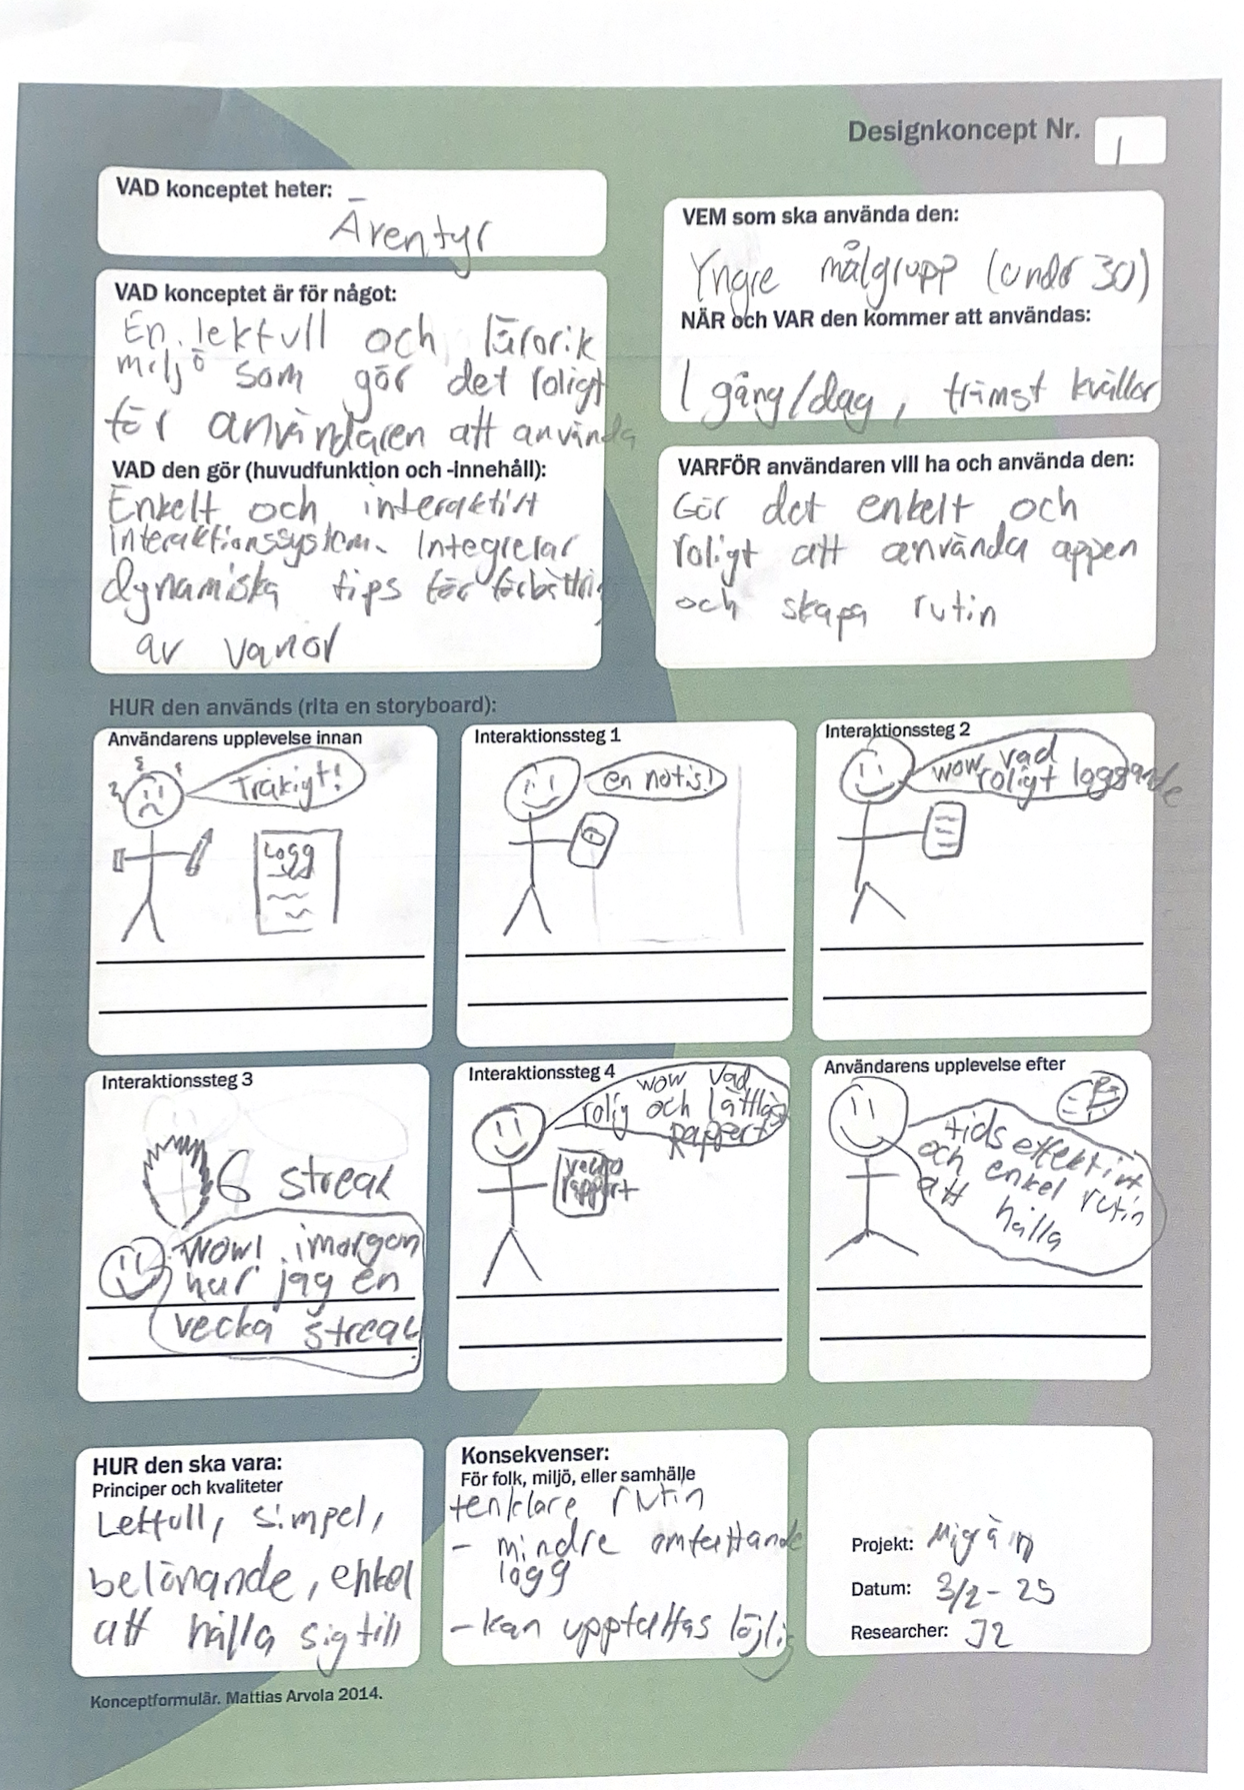 Designkoncept Nr. 1
VAD konceptet heter:
Äventyr
VAD konceptet är för något:
En lekfull och lärorik
miljö som gör det roligt
för användaren att använda
VAD den gör (huvudfunktion och -innehåll):
Enkelt och interaktivt
interaktionssystem. Integrerar
dynamiska tips för förbättring
av vanor
VEM som ska använda den:
Yngre målgrupp (under 30)
NÄR och VAR den kommer att användas:
1 gång/dag, främst kvällar
VARFÖR användaren vill ha och använda den:
Gör det enkelt och
roligt att använda appen
och skapa rutin
HUR den används (rita en storyboard):
Användarens upplevelse innan
Tråkigt!
Logg
Interaktionssteg 1
en notis!
Interaktionssteg 2
wow vad
roligt loggande
Interaktionssteg 3
6 streak
Wow! imorgon
har jag en
vecka streak!
Interaktionssteg 4
wow vad
rolig och lättläst
rapport
vecko
rapport
Användarens upplevelse efter
tidseffektivt
och enkel rutin
att hålla
HUR den ska vara:
Principer och kvaliteter
Lekfull, simpel,
belönande, enkel
att hålla sig till
Konsekvenser:
För folk, miljö, eller samhälle
+enklare rutin
- mindre omfattande
logg
- kan uppfattas löjlig
Projekt: Migrän
Datum: 3/2-25
Researcher: J2
Konceptformulär. Mattias Arvola 2014.